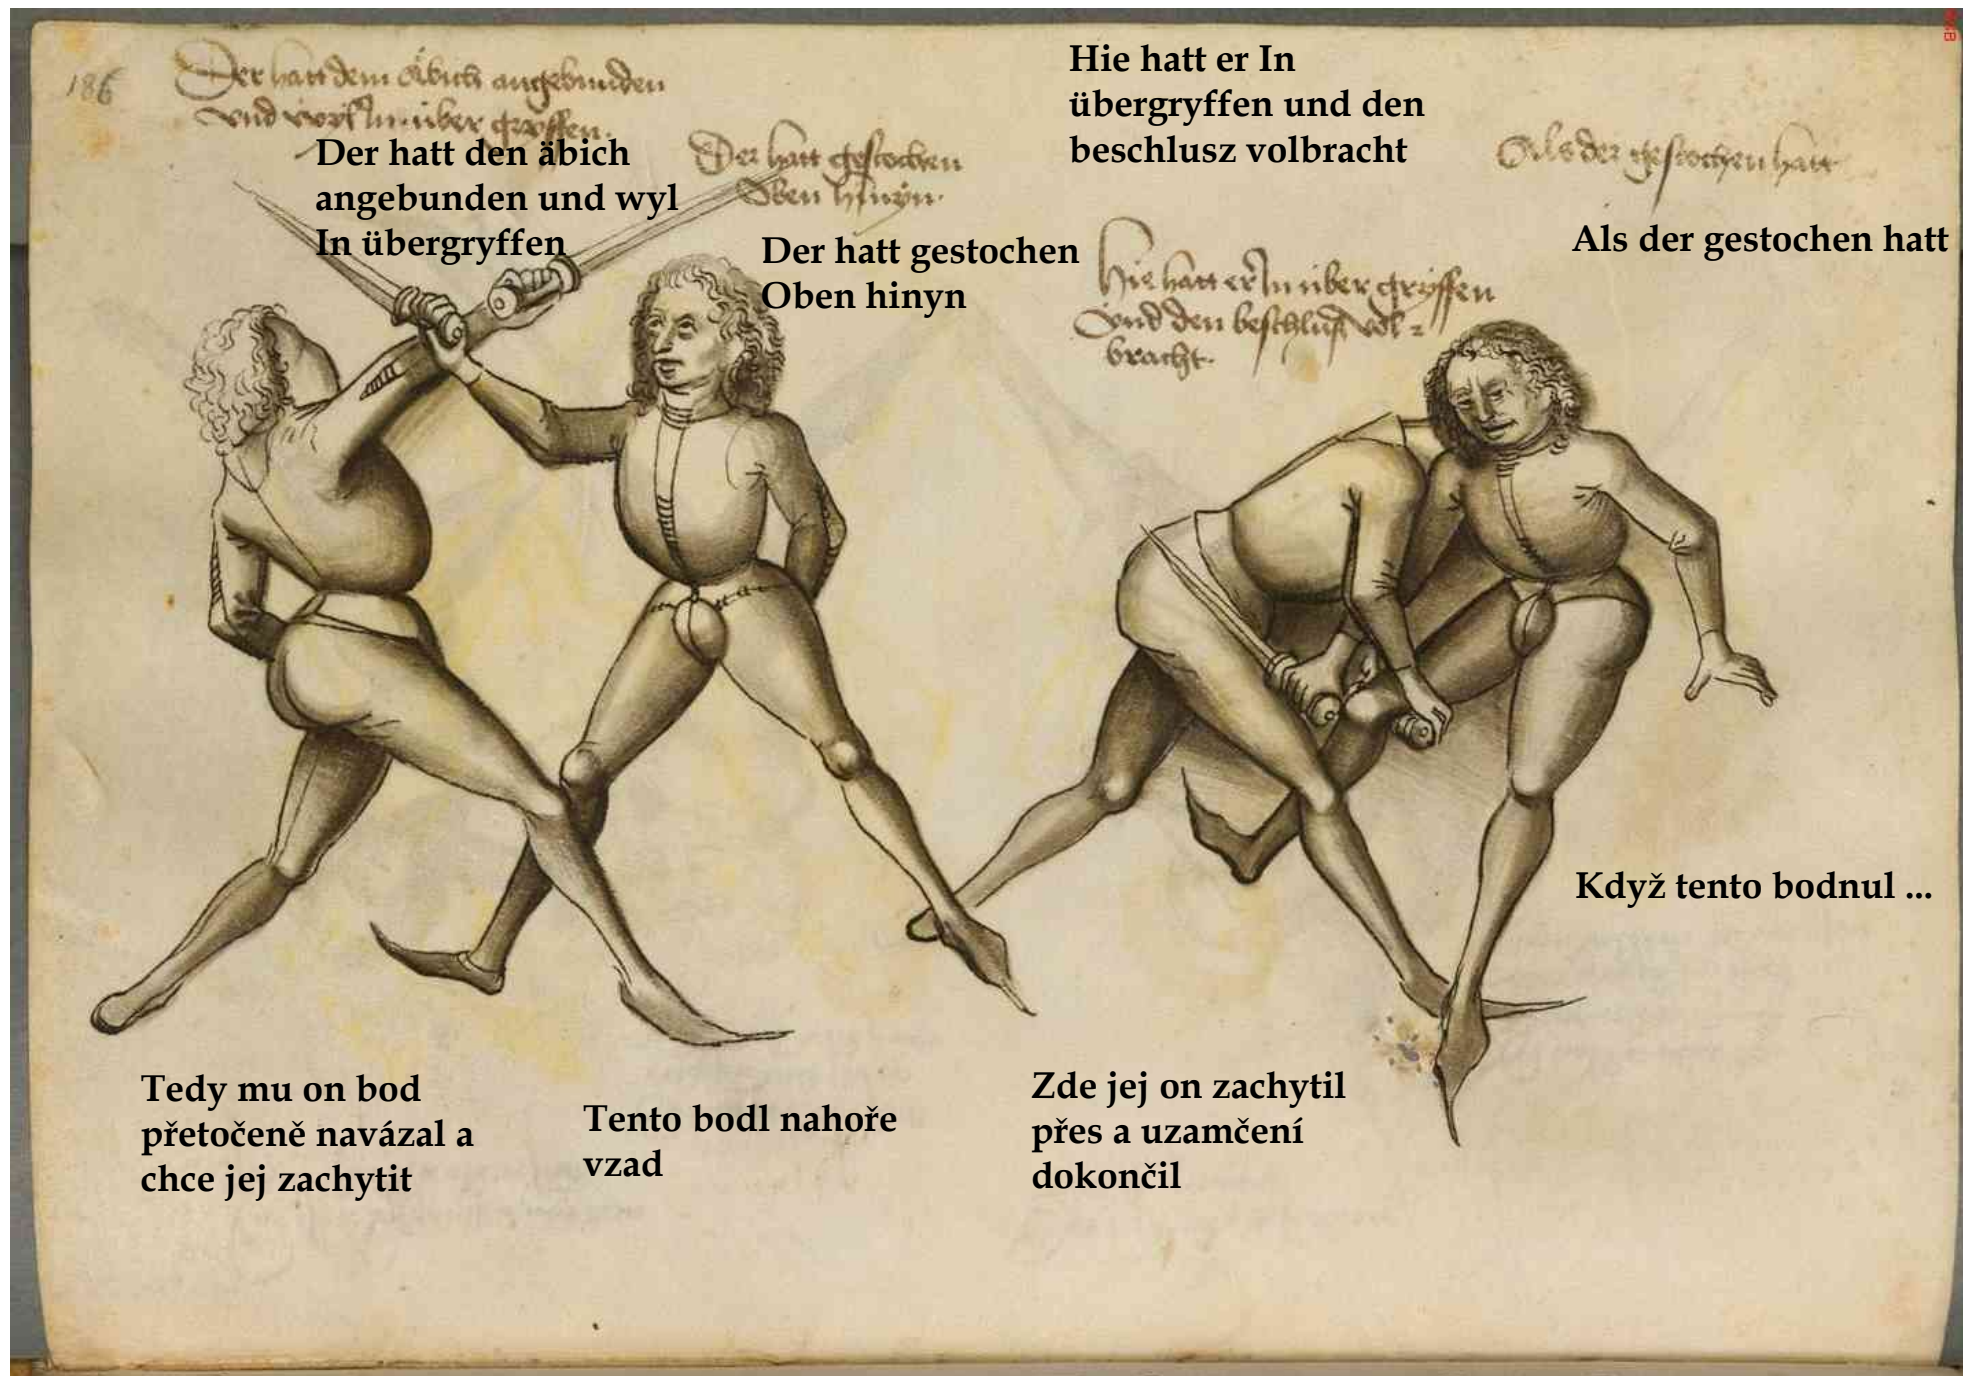 186
Der hatt dem Äbich angebunden
Und wyl In über gryffen.
Der hatt den äbich
angebunden und wyl
In übergryffen
Der hatt gestochen
Oben hinyn.
Der hatt gestochen
Oben hinyn
Hie hatt er In
übergryffen und den
beschlusz volbracht
Als der gestochen hatt
Als der gestochen hatt
Hie hatt er In über gryffen
Und den beschlusz vol-
bracht.
Když tento bodnul ...
Tedy mu on bod
přetočeně navázal a
chce jej zachytit
Tento bodl nahoře
vzad
Zde jej on zachytil
přes a uzamčení
dokončil